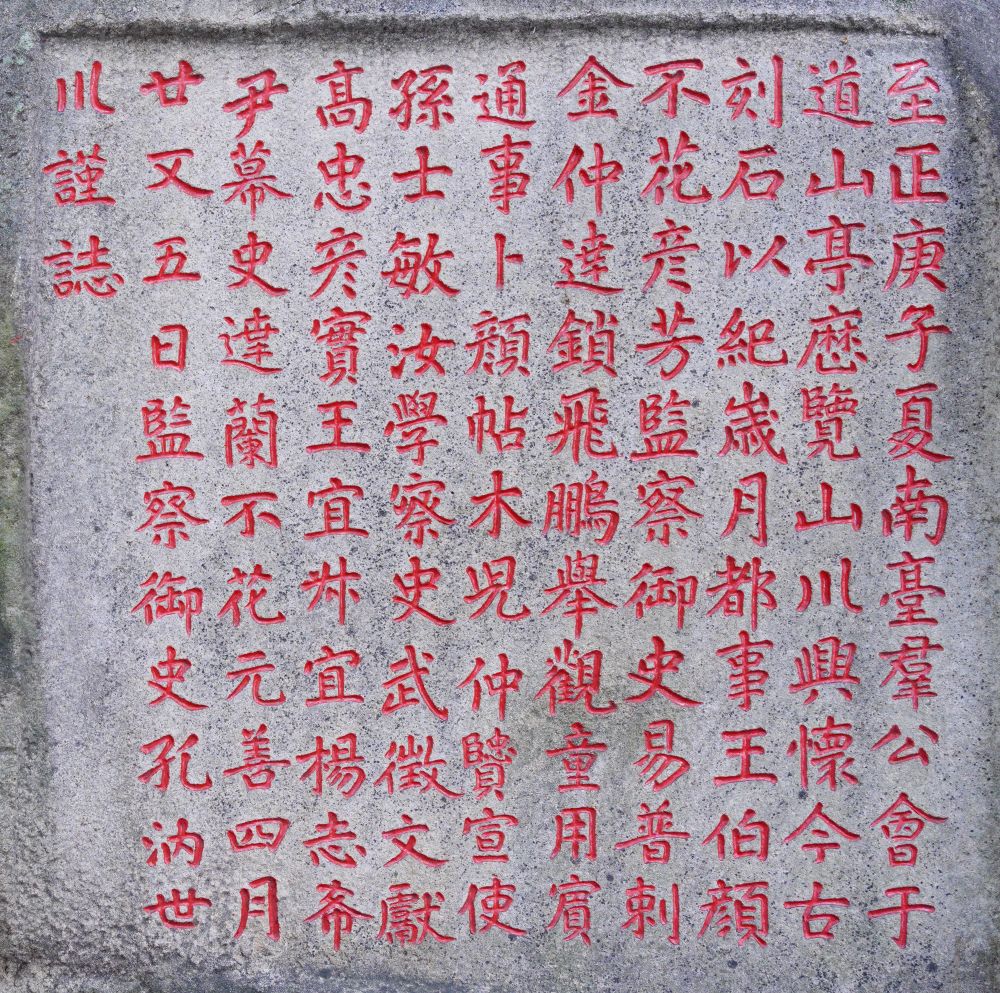 至正庚子夏南臺羣公會于
道山亭歷覽山川興懷今古
刻石以紀歲月都事王伯顏
不花彥芳監察御史易普剌
金仲達鎖飛鵬舉觀童用賓
通事卜顏帖木兒仲贇宣使
孫士敏汝學察史武徵文獻
高忠彥實王宜叔宜楊志齋
尹幕史達蘭不花元善四月
廿又五日監察御史孔汭世
川謹誌